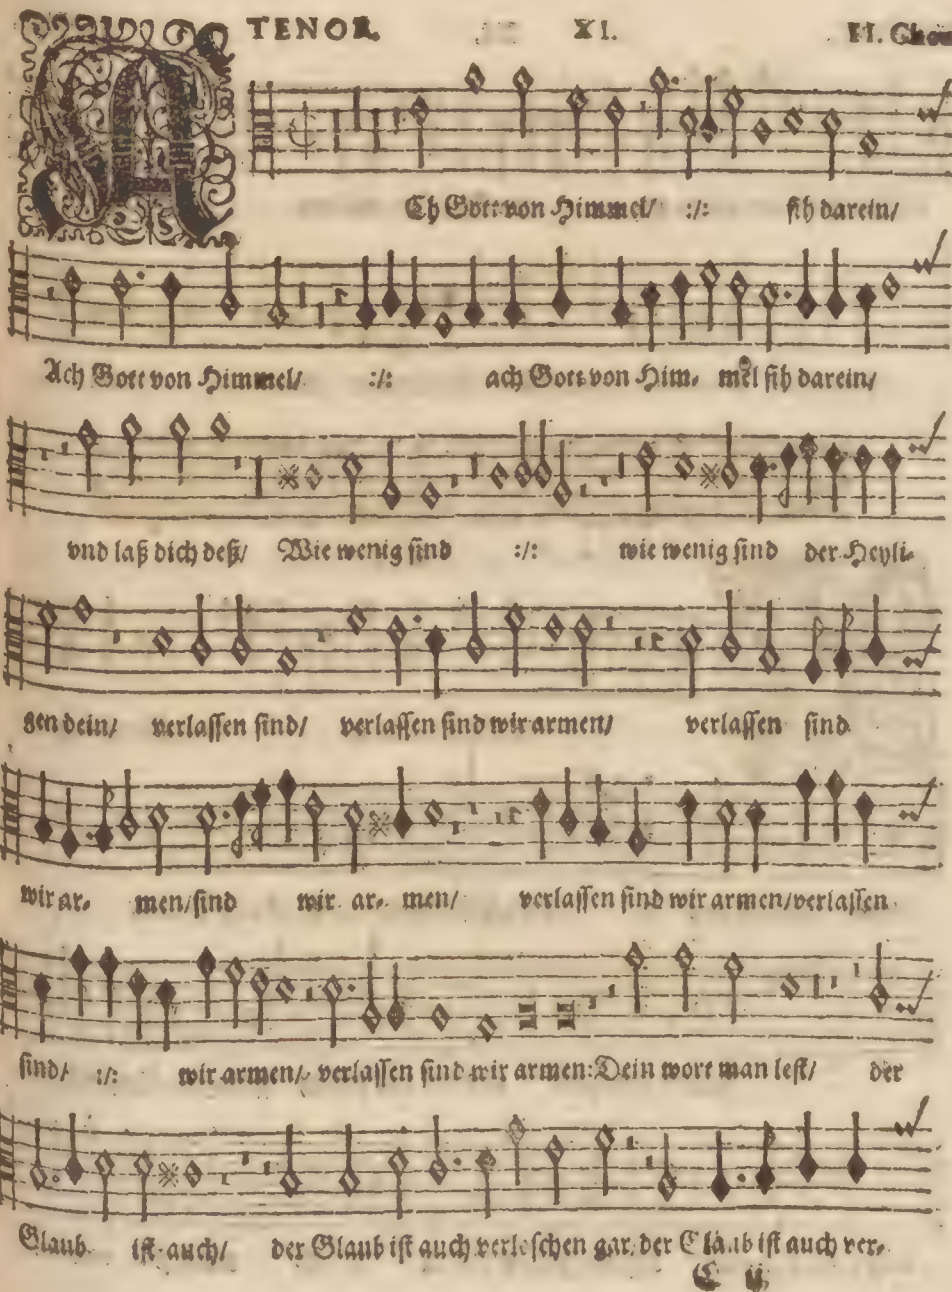 TENOR. XI. H. Chou
ACh Gott von Himmel/ :/: sih darein/
Ach Gott von Himmel/ :/: ach Gott von Him- mel sih darein/
vnd laß dich deß/ Wie wenig sind :/: wie wenig sind der Heyli-
gen dein/ verlassen sind/ verlassen sind wir armen/ verlassen sind
wir ar- men/ sind wir ar- men/ verlassen sind wir armen/ verlassen
sind/ :/: wir armen/ verlassen sind wir armen: Dein wort man lest/ der
Glaub ist auch/ der Glaub ist auch verloschen gar. der Glaub ist auch ver-
C ij